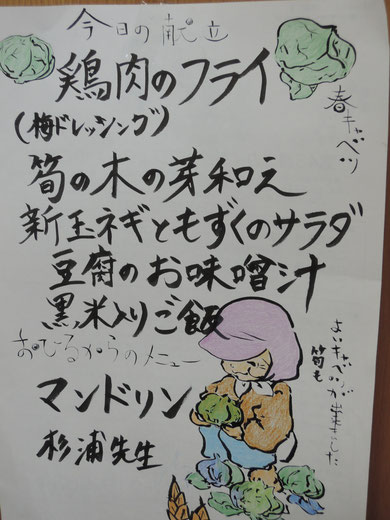 今日の献立
鶏肉のフライ
(梅ドレッシング)
春キャベツ
筍の木の芽和え
新玉ネギともずくのサラダ
豆腐のお味噌汁
黒米入りご飯
おひるからのメニュー
マンドリン
杉浦先生
よいキャベツが出来ました
筍も